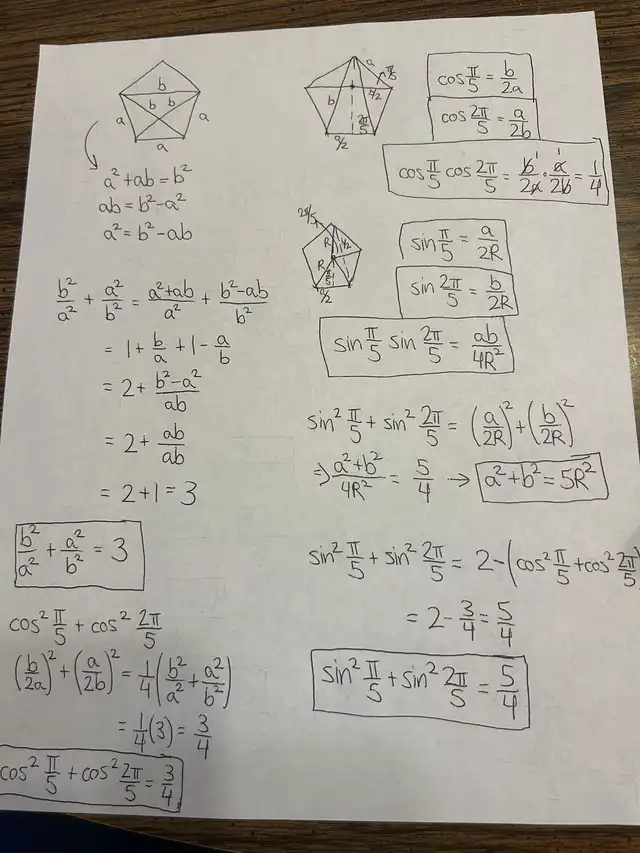 b
b b
a a
a
a² + ab = b²
ab = b² - a²
a² = b² - ab
b²/a² + a²/b² = (a² + ab)/a² + (b² - ab)/b²
= 1 + b/a + 1 - a/b
= 2 + (b² - a²)/ab
= 2 + ab/ab
= 2 + 1 = 3
b²/a² + a²/b² = 3
cos² π/5 + cos² 2π/5
(b/2a)² + (a/2b)² = 1/4 (b²/a² + a²/b²)
= 1/4 (3) = 3/4
cos² π/5 + cos² 2π/5 = 3/4
a
π/5
b
b/2
2π/5
a/2
cos π/5 = b/2a
cos 2π/5 = a/2b
cos π/5 cos 2π/5 = b/2a · a/2b = 1/4
2π/5
R
R
π/5
a/2
sin π/5 = a/2R
sin 2π/5 = b/2R
sin π/5 sin 2π/5 = ab/4R²
sin² π/5 + sin² 2π/5 = (a/2R)² + (b/2R)²
⇒ (a² + b²)/4R² = 5/4 → a² + b² = 5R²
sin² π/5 + sin² 2π/5 = 2 - (cos² π/5 + cos² 2π/5)
= 2 - 3/4 = 5/4
sin² π/5 + sin² 2π/5 = 5/4